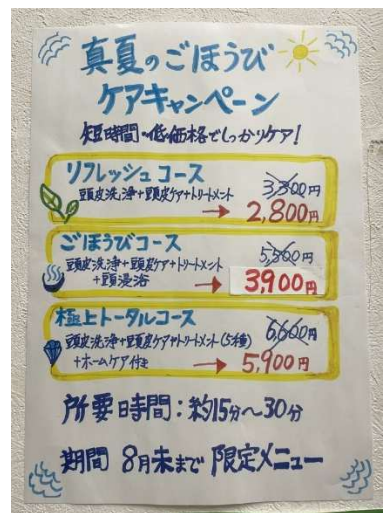 真夏のごほうび
ケアキャンペーン
短時間・低価格でしっかりケア!
リフレッシュコース
頭皮洗浄+頭皮ケア+トリートメント
3,300円
→ 2,800円
ごほうびコース
頭皮洗浄+頭皮ケア+トリートメント
+頭浸浴
5,500円
→ 3,900円
極上トータルコース
頭皮洗浄+頭皮ケア+トリートメント(5種)
+ホームケア付き
6,600円
→ 5,900円
所要時間:約15分〜30分
期間 8月末まで 限定メニュー